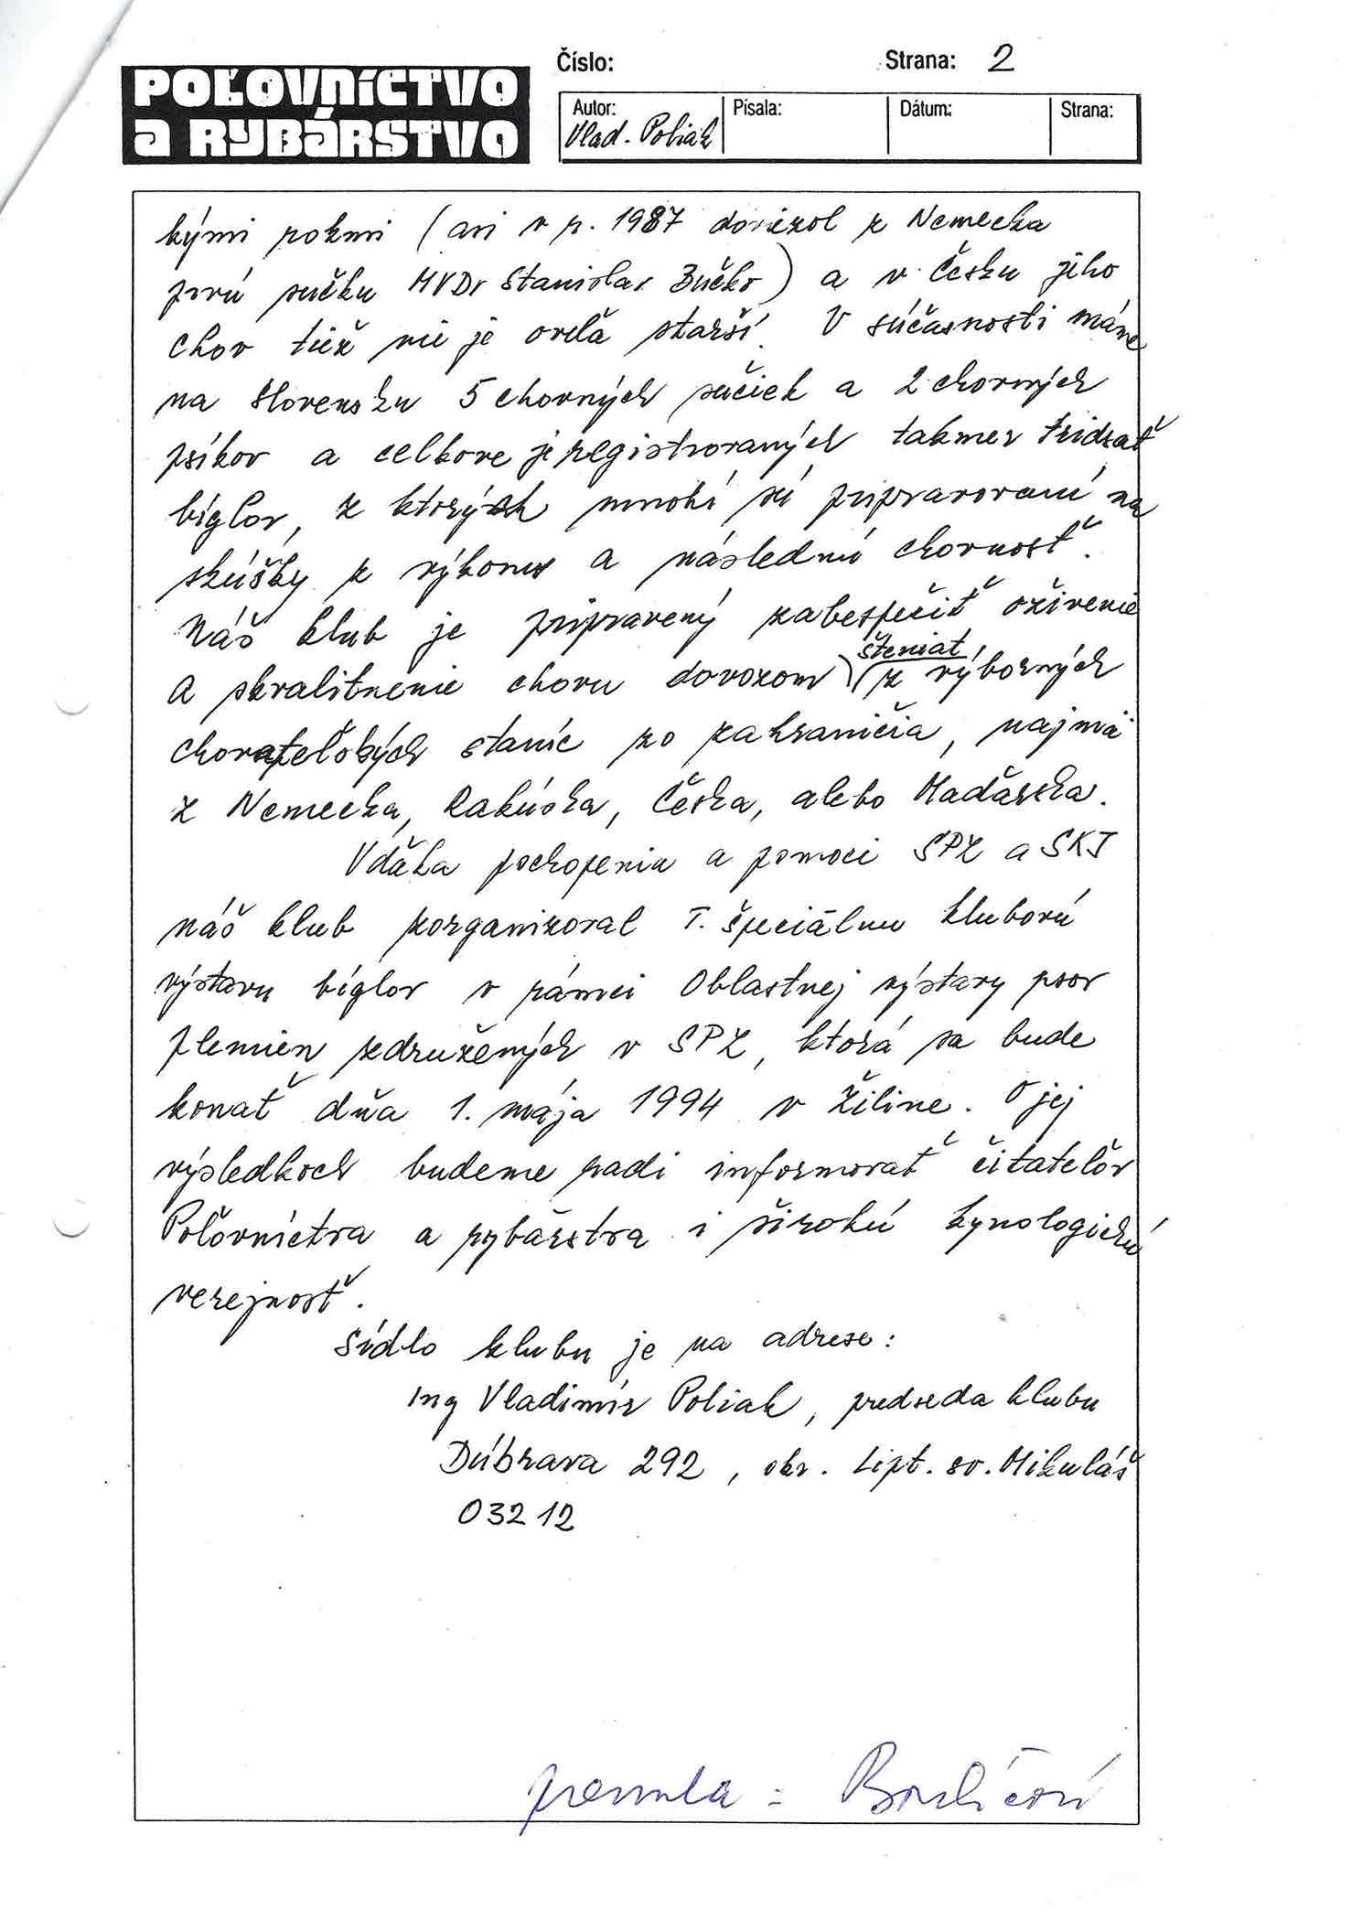 Číslo:
Strana: 2
POĽOVNÍCTVO
a RYBÁRSTVO
Autor: Písala: Dátum: Strana:
Vlad. Poliak
kými rokmi (asi v r. 1987 doviezol z Nemecka
prvú sučku MVDr Stanislav Bučko) a v Česku jeho
chov tiež nie je oveľa starší. V súčasnosti máme
na Slovensku 5 chovných sučiek a 2 chovných
psíkov a celkove je registrovaných takmer tridsať
bíglov, z ktorých mnohí sú pripravovaní na
skúšky z výkonu a následnú chovnosť.
Náš klub je pripravený zabespečiť oživenie
šteniat
a skvalitnenie chovu dovozom z výborných
chovateľských staníc zo zahraničia, najmä
z Nemecka, Rakúska, Česka, alebo Maďarska.
Vďaka pochopeniu a pomoci SPZ a SKJ
náš klub zorganizoval I. špeciálnu klubovú
výstavu bíglov v rámci Oblastnej výstavy psov
plemien združených v SPZ, ktorá sa bude
konať dňa 1. mája 1994 v Žiline. O jej
výsledkoch budeme radi informovať čitateľov
Poľovníctva a rybárstva i širokú kynologickú
verejnosť.
Sídlo klubu je na adrese:
Ing Vladimír Poliak, predseda klubu
Dúbrava 292, okr. Lipt. sv. Mikuláš
032 12